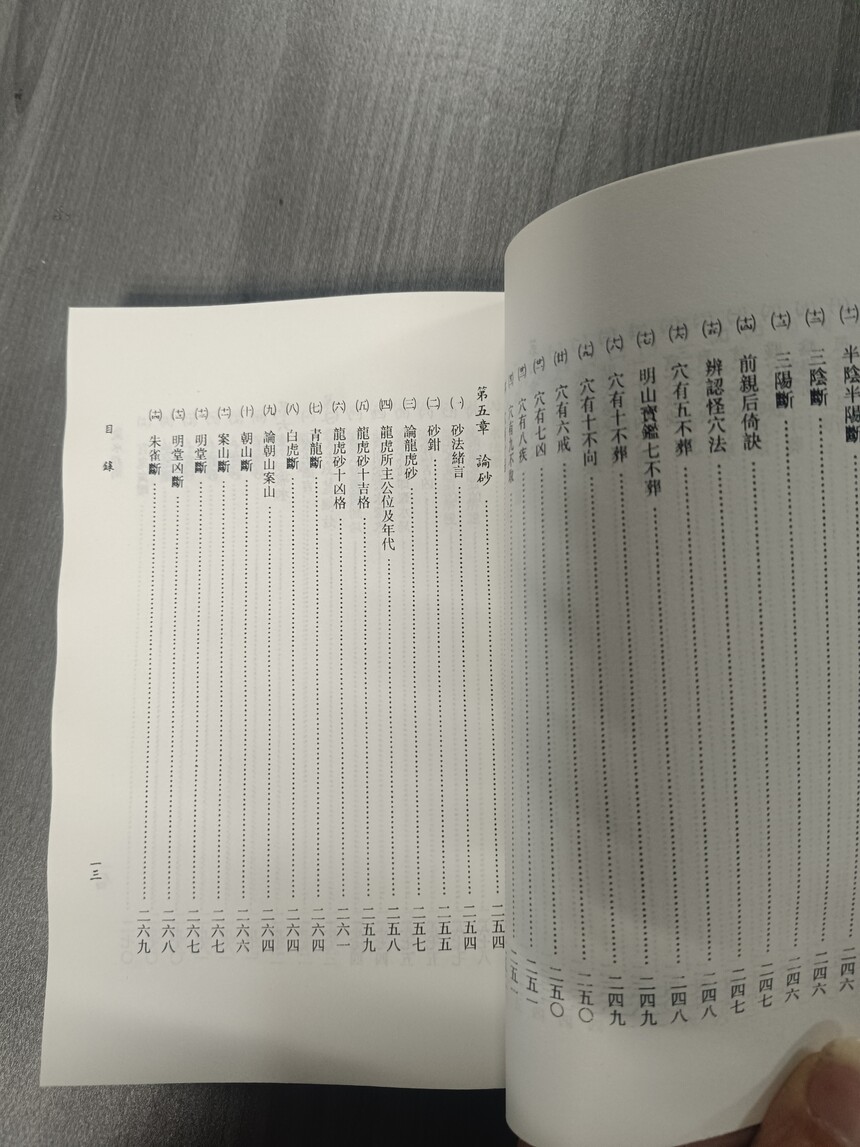 (十一) 半陰半陽斷……二四六
(十二) 三陰斷……二四六
(十三) 三陽斷……二四六
(十四) 前親后倚訣……二四七
(十五) 辨認怪穴法……二四七
(十六) 穴有五不葬……二四八
(十七) 明山寶鑑七不葬……二四八
(十八) 穴有十不葬……二四九
(十九) 穴有十不向……二四九
(廿) 穴有六戒……二五〇
穴有七凶……二五〇
穴有八疾……二五一
穴有九不……二五一
第五章 論砂……二五四
(一) 砂法緒言……二五四
(二) 砂鉗……二五五
(三) 論龍虎砂……二五七
(四) 龍虎所主公位及年代……二五八
(五) 龍虎砂十吉格……二五九
(六) 龍虎砂十凶格……二六一
(七) 青龍斷……二六四
(八) 白虎斷……二六四
(九) 論朝山案山……二六四
(十) 朝山斷……二六六
(十一) 案山斷……二六七
(十二) 明堂斷……二六七
(十三) 明堂凶斷……二六八
(十四) 朱雀斷……二六九
目錄
一三